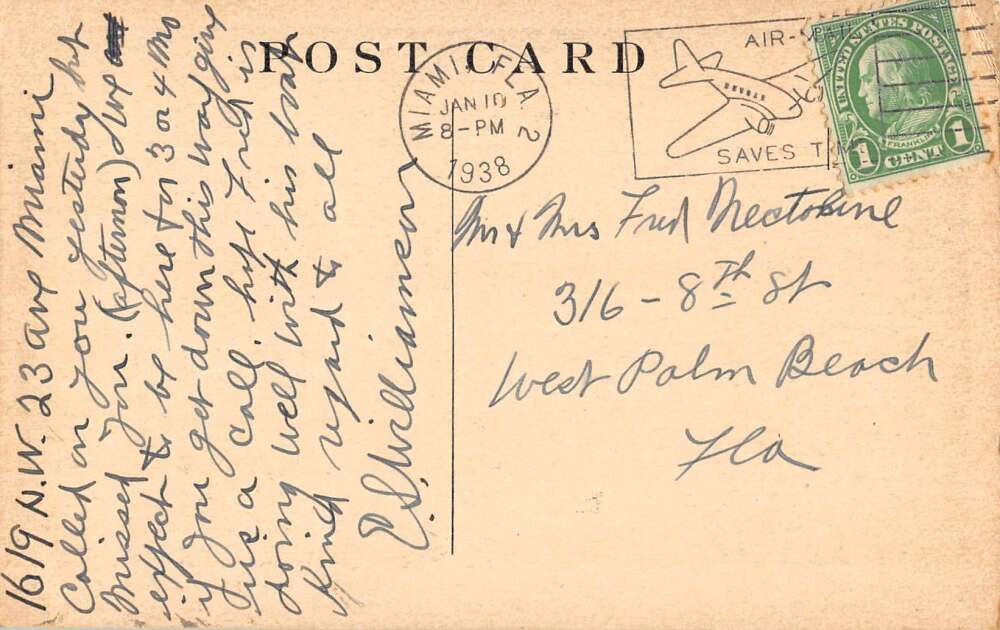 POST CARD
MIAMI, FLA. 2
JAN 10
8-PM
1938
AIR-MAIL
SAVES TIME
UNITED STATES POSTAGE
FRANKLIN
1 CENT 1
1619 N.W. 23 ave Miami
Called on you yesterday but
missed you. (afternoon) We
expect to be here for 3 or 4 mo
if you get down this way give
us a call. hope Fred is
doing well with his boat
Kind regard to all
E.S. Williamson
Mr & Mrs Fred
316 - 8th St
West Palm Beach
Fla